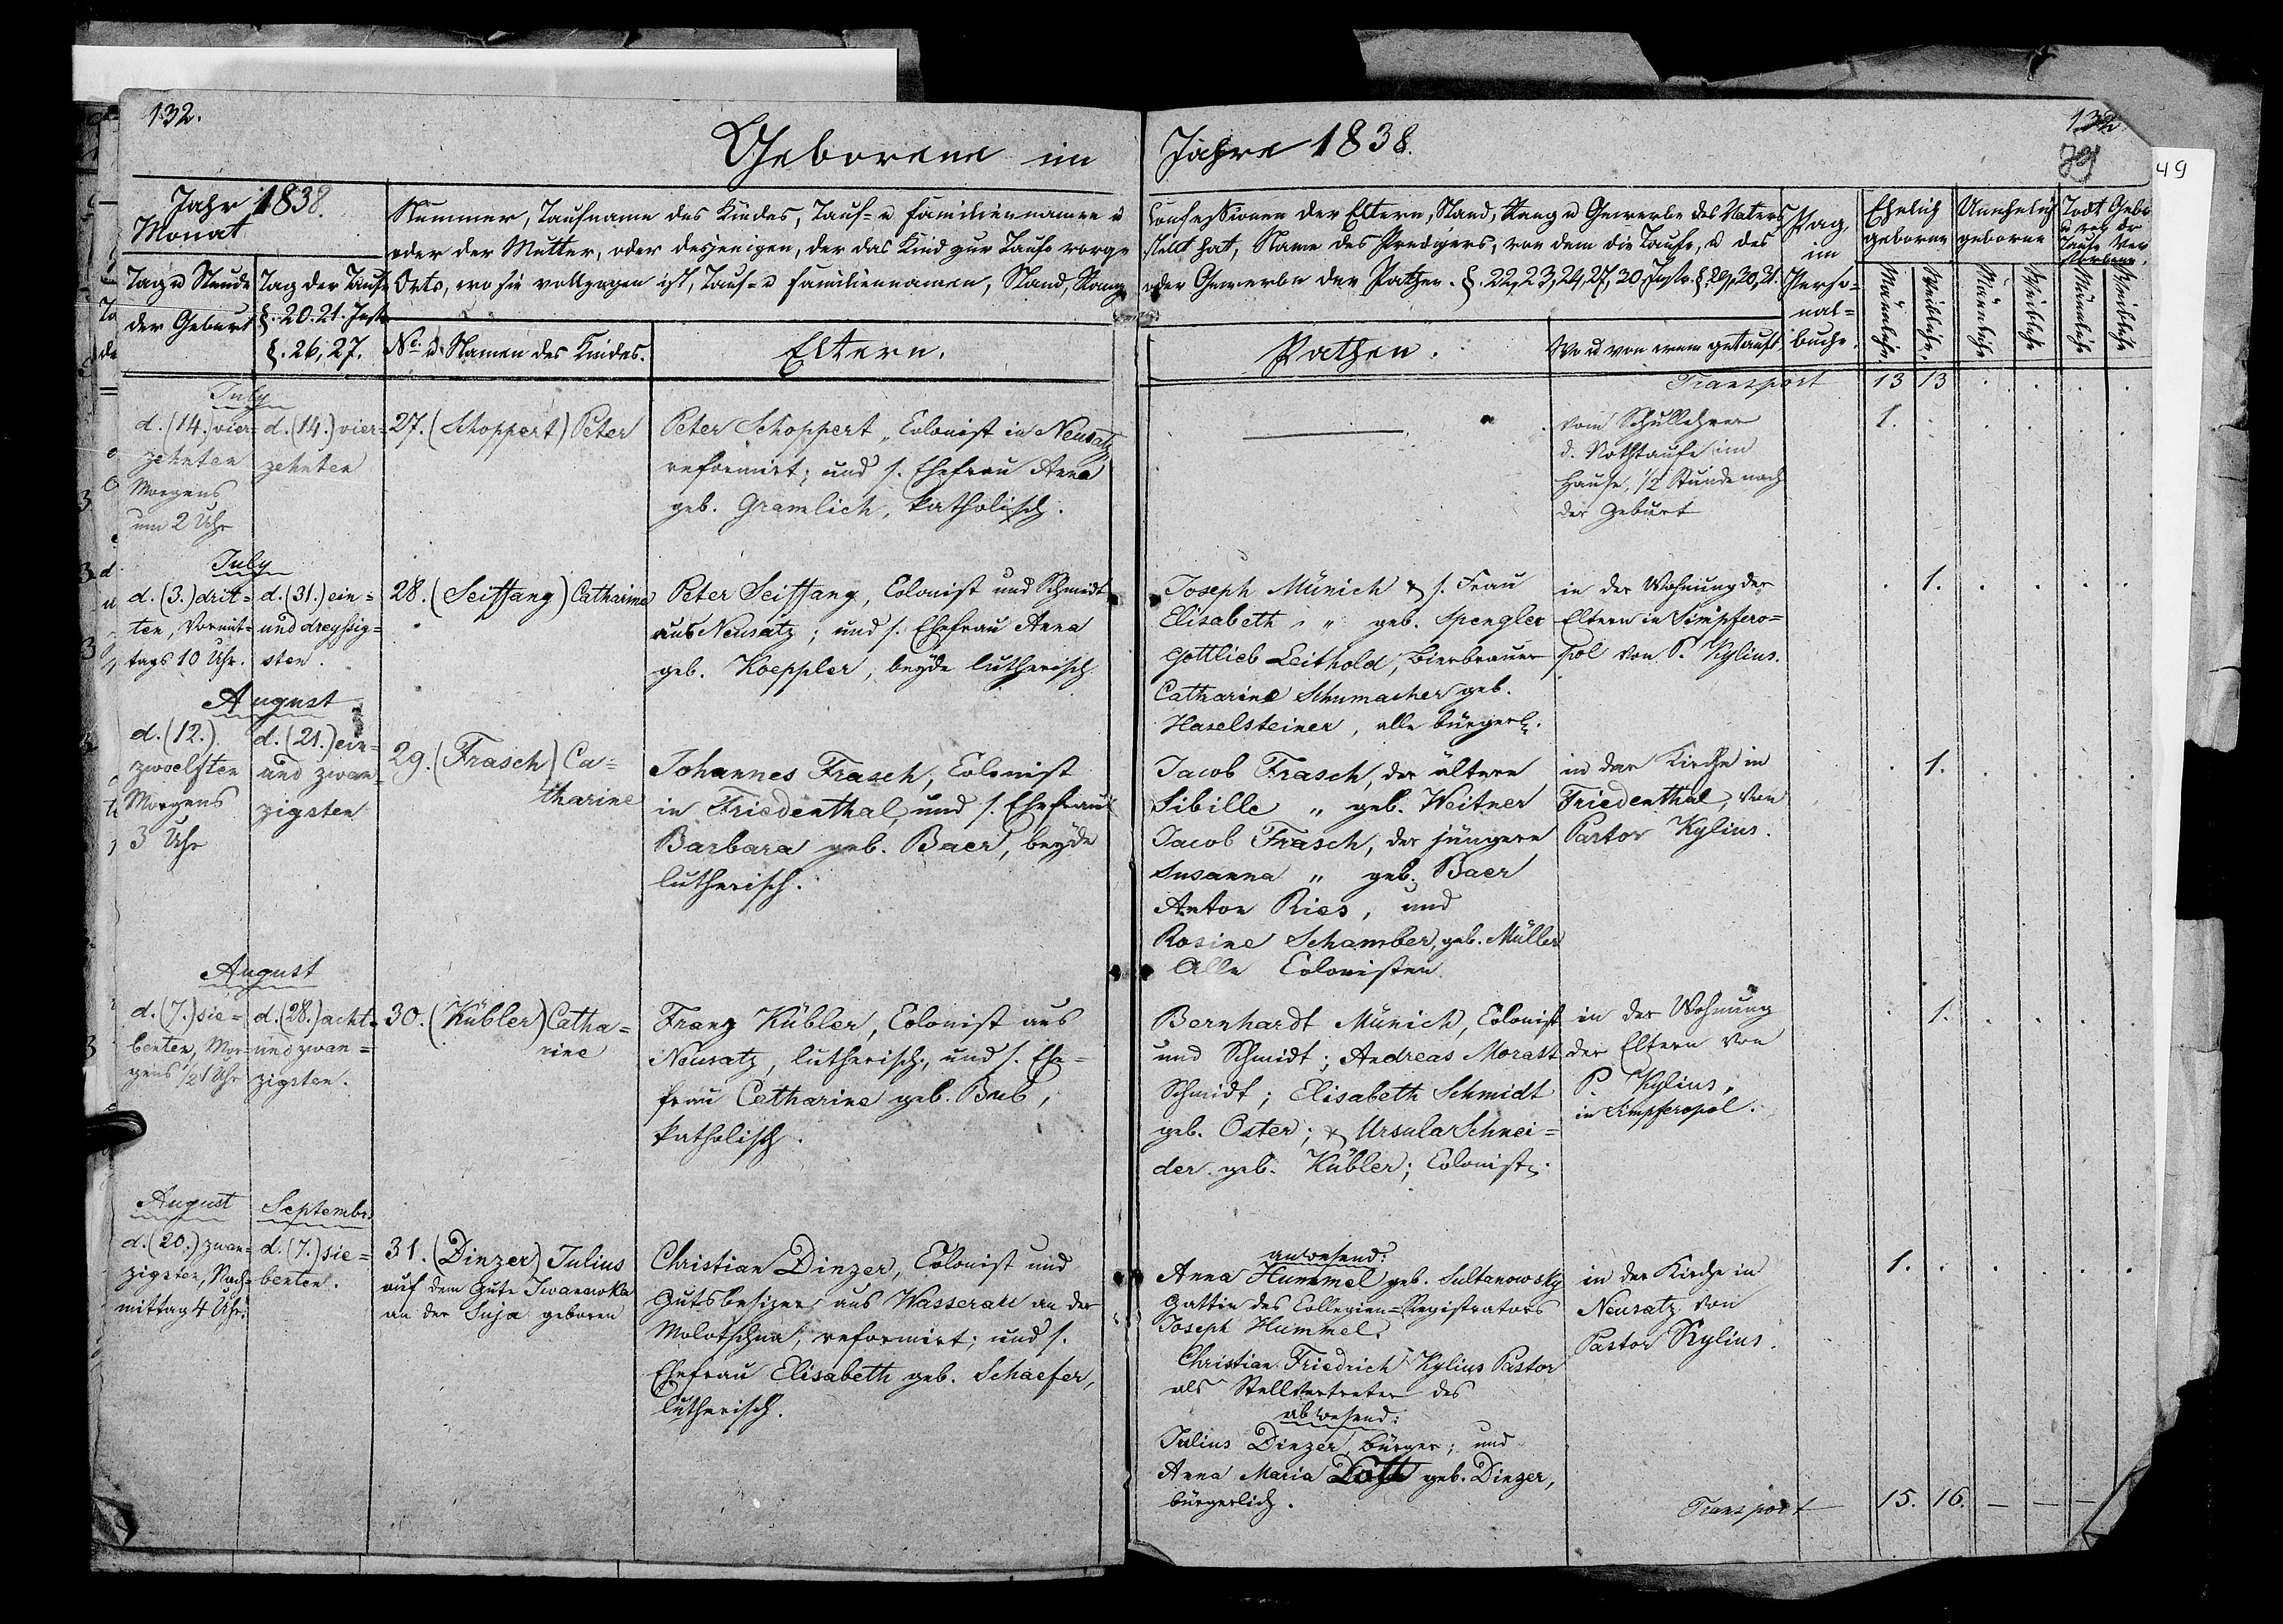 132.
Geborene im
Jahr 1838.
Monat
Nummer, Taufname des Kindes, Tauf- u Familienname u
oder der Mutter, oder desjenigen, der das Kind zur Taufe vorge
Orts, wo sie vollzogen ist, Tauf- u Familiennamen, Stand, Rang
Tag u Stunde
der Geburt
Tag der Taufe
§. 20. 21. Inst.
§. 26, 27.
No. u. Namen des Kindes.
Eltern.
July
d. (14.) vier-
zehnten
Morgens
um 2 Uhr
d. (14.) vier-
zehnten
27. (Schoppert) Peter
Peter Schoppert, Colonist in Neusatz
reformirt; und s. Ehefrau Anna
geb. Gramlich, katholisch.
July
d. (3.) drit=
ten, Vormit-
tags 10 Uhr.
d. (31.) ein=
und dreyssig=
sten.
28. (Seiffang) Catharine
Peter Seiffang, Colonist und Schmidt
aus Neusatz; und s. Ehefrau Anna
geb. Koeppler, beyde lutherisch
August
d. (12.)
zwoelften
Morgens
3 Uhr
d. (21.) ein-
und zwan-
zigsten
29. (Frasch) Ca=
tharine
Johannes Frasch, Colonist
in Friedenthal, und s. Ehefrau
Barbara geb. Baer, beyde
lutherisch.
August
d. (7.) sie=
benten, Mor-
gens 1/2 1 Uhr
d. (28.) acht-
und zwan=
zigsten.
30. (Kübler) Catha=
rine
Franz Kübler, Colonist aus
Neusatz, lutherisch, und s. Ehe=
frau Catharine geb. Bub,
katholisch.
August
d. (20.) zwan-
zigsten, Nach-
mittag 4 Uhr.
Septembr.
d. (7.) sie=
benten.
31. (Dinzer) Julius
auf dem Gute Iwanowka
an der Suja geboren
Christian Dinzer, Colonist und
Gutsbesizer, aus Wasserau an der
Molotschna, reformirt; und s.
Ehefrau Elisabeth geb. Schaefer,
lutherisch.
Jahre 1838.
132
79
49
Confessionen der Eltern, Stand, Rang u Gewerbe des Vaters
stellt hat, Name des Predigers, von dem die Taufe, u des
oder Gewerbe der Pathen. §. 22, 23, 24, 27, 30 Instr. §. 29, 30, 31.
Pathen.
Wo u von wem getauft
Pag.
im
Perso=
nal=
buche.
Ehelich
geborne
Unehelich
geborne
Todt Gebo
u vor der
Taufe Ver
storbene.
Männliche.
Weibliche.
Männliche
Weibliche
Männliche
Weibliche
Transport 13 13
vom Schullehrer
d. Nothtaufe im
Hause, 1/2 Stunde nach
der Geburt
1.
Joseph Münich & s. Frau
Elisabeth " geb. Spengler
Gottlieb Leithold, Bierbrauer
Catharine Schumacher geb.
Haselsteiner, alle bürgerl.
in der Wohnung der
Eltern in Simpfero=
pol von P. Kylius.
1.
Jacob Frasch, der ältere
Sibille " geb. Weitner
Jacob Frasch, der jüngere
Susanna " geb. Baer
Anton Ries, und
Rosine Schamber, geb. Müller
Alle Colonisten
in der Kirche in
Friedenthal, von
Pastor Kylius.
1.
Bernhardt Münich, Colonist
und Schmidt; Andreas Morast
Schmidt; Elisabeth Schmidt
geb. Oster; & Ursula Schnei=
der geb. Kübler; Colonist.
in der Wohnung
der Eltern von
P. Kylius,
in Simpferopol.
1.
anwesend:
Anna Hummel geb. Sultanowsky
Gattin des Collegien=Registrators
Joseph Hummel.
Christian Friedrich Kylius Pastor
als Stellvertreter des
abwesend:
Julius Dinzer, Bürger; und
Anna Maria geb. Dinzer,
bürgerlich.
in der Kirche in
Neusatz von
Pastor Kylius.
1.
Transport 15. 16. — — —